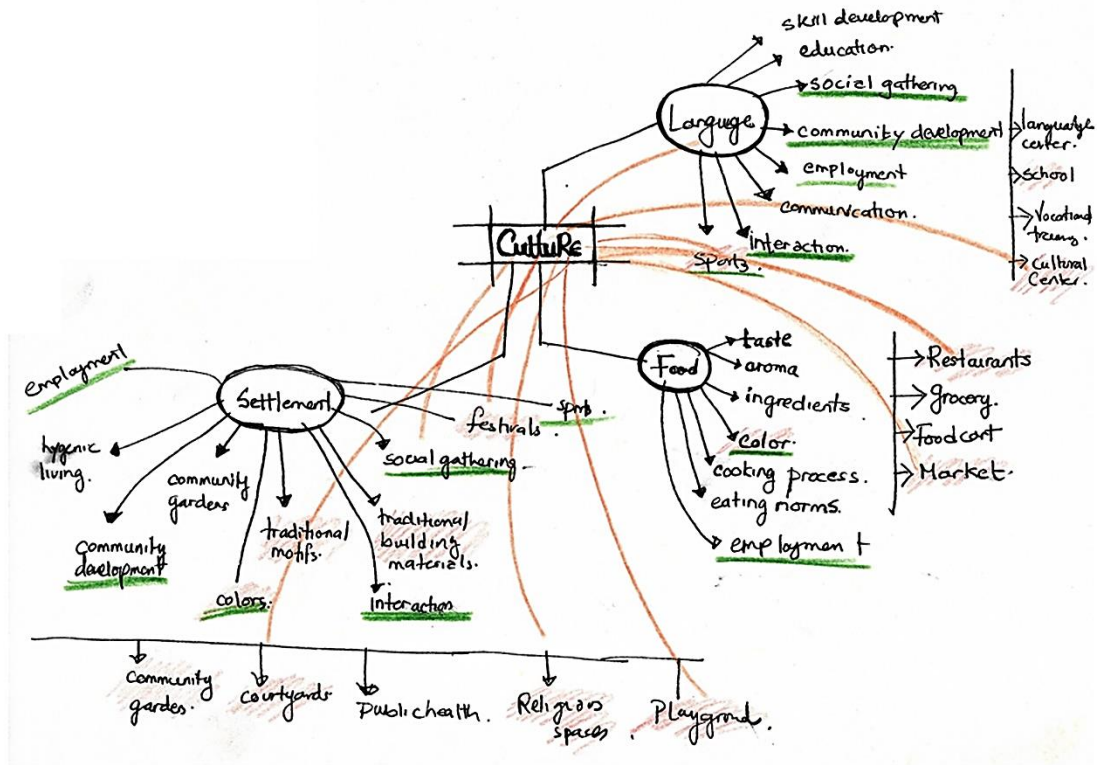 skill development
education.
social gathering
Language
community development
employment
communication.
interaction.
sports.
language
center.
school
Vocational
Cultural
Center.
CultuRe
Food
taste
aroma
ingredients
color.
cooking process.
eating norms.
employment
Restaurants
grocery.
Food cart
Market.
Settlement
employment
hygenic
living.
community
development
community
gardens
colors.
traditional
motifs.
traditional
building
materials.
interaction
social gathering.
festivals.
sports.
Community
garden.
Courtyards
Public health.
Religious
spaces
Playground.